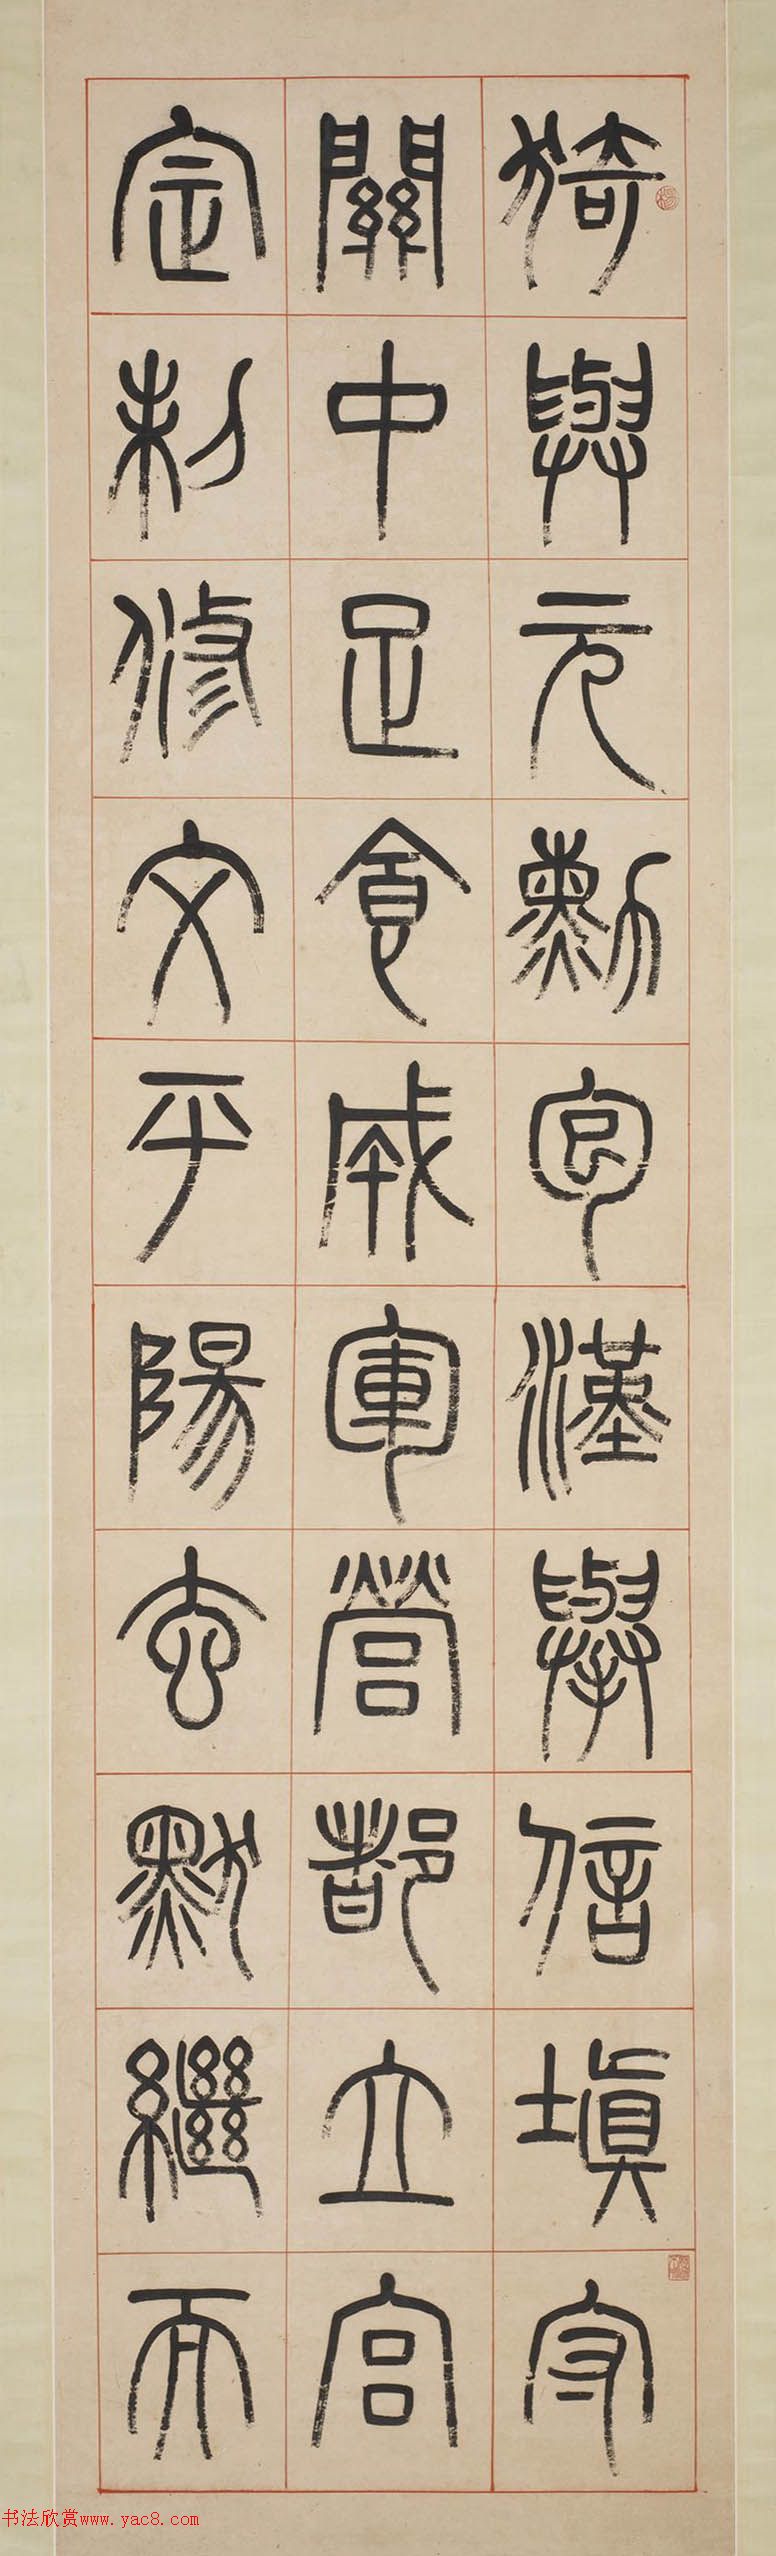 猗與元勳包漢舉信填守
關中足食成軍營都立宮
定制修文平陽玄默繼而
书法欣赏www.yac8.com